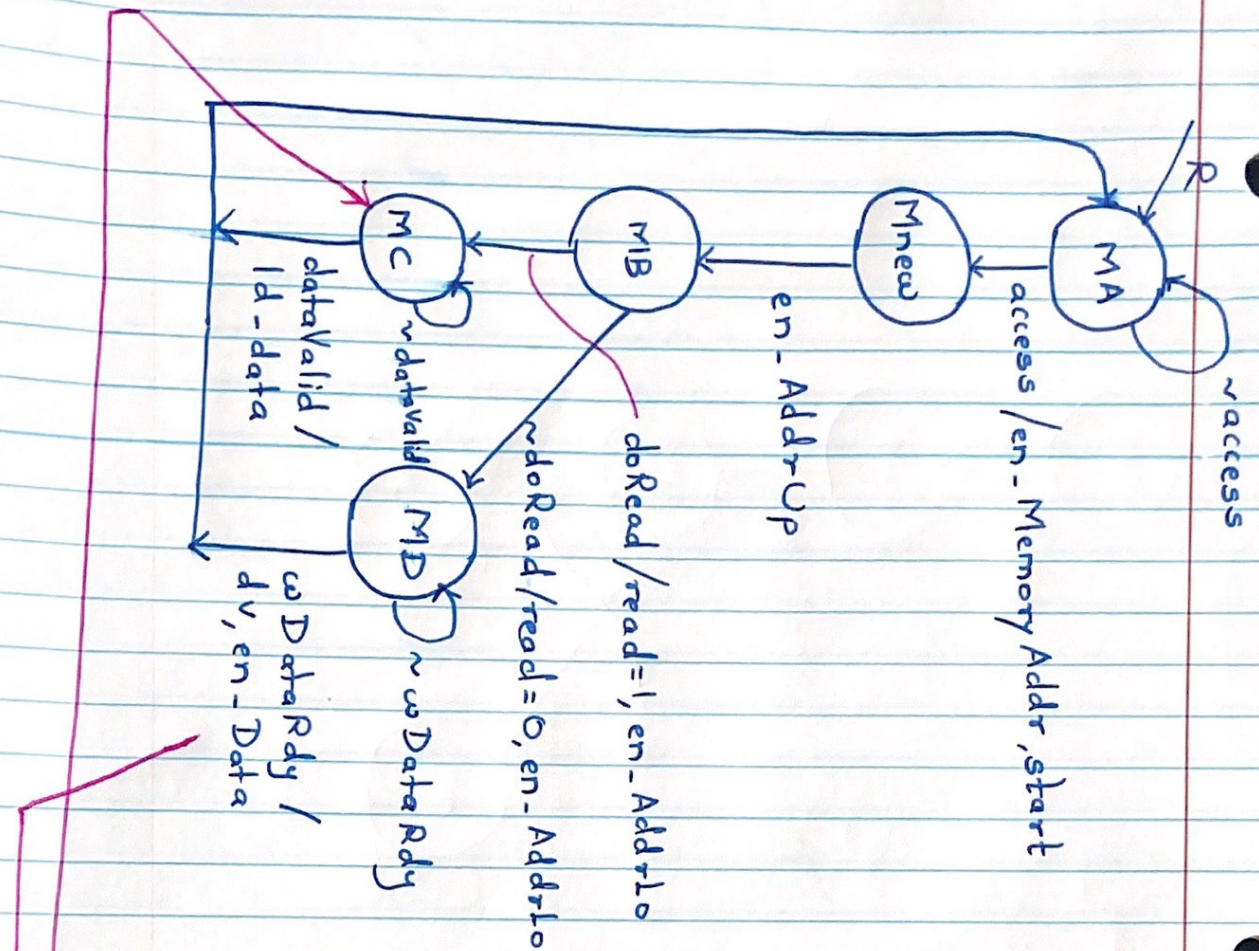 R
~access
MA
access/en_MemoryAddr,start
Mnew
en_AddrUp
MB
doRead/read=1,en_AddrLo
~doRead/read=0,en_AddrLo
MC
~dataValid
MD
~wDataRdy
dataValid/
ld-data
wDataRdy/
dv,en_Data